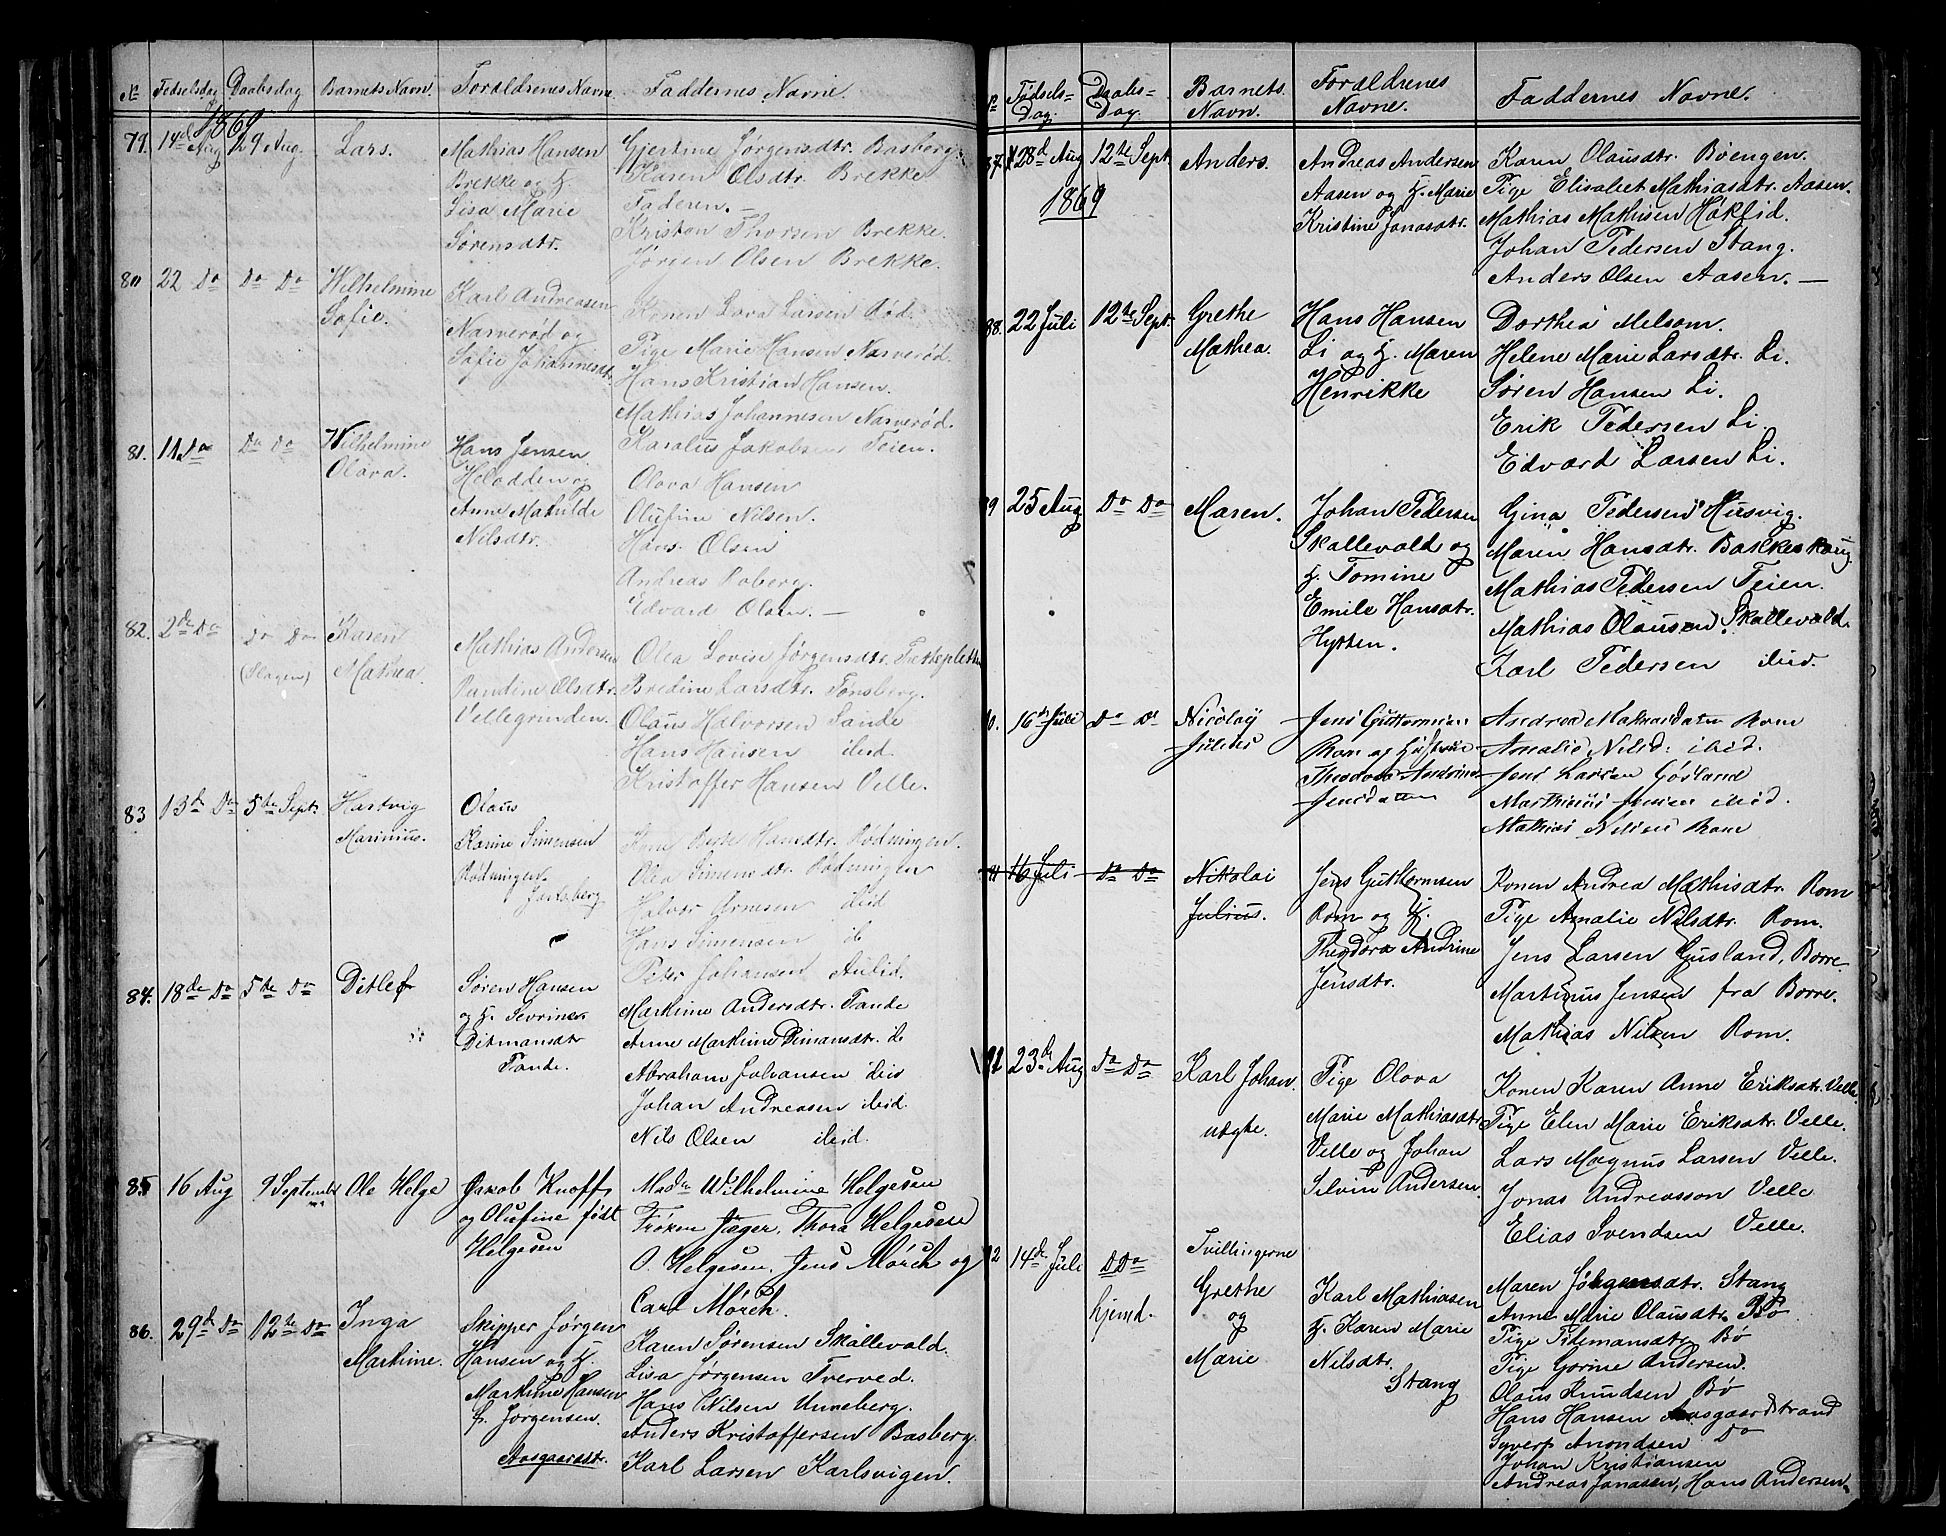 № Fødselsdag Daabsdag Barnets Navn. Forældrenes Navne. Faddernes Navne.
1869
79. 14de Aug 29 Aug. Lars. Mathias Hansen Gjertine Jørgensdtr. Basberg.
Brekke og H. Karen Olsdtr. Brekke
Lisa Marie Faderen. —
Sørensdtr. Kristen Thorsen Brekke.
Jørgen Olsen Brekke.
80 22 Do Do Do Wilhelmine Karl Andreasen Konen Lova Larsen Rød.
Sofie. Narverød og Pige Marie Hansen Narverød.
Sofie Johannesdtr. Hans Kristian Hansen.
Mathias Johannesen Narverød.
81. 11 Do Do Do Wilhelmine Hans Jensen Karolus Jakobsen Feien.
Olava. Heladden og Olava Hansen
Anne Mathilde Olufine Nilsen.
Nilsdtr. Hans Olsen
Andreas Roberg.
Edvard Olsen. —
82. 2de Do Do Do Karen Mathias Andersen Olea Lovise Jørgensdtr. Træklepletten
(Slagen) Mathea. Pandine Olsdtr. Bredine Larsdtr. Tønsberg.
Vellegrinden. Olaus Halvorsen Sande
Hans Hansen ibid.
Kristoffer Hansen Velle.
83 13de Do 5te Sept. Hartvig Olaus
Marinius. Karine Simensen Hansdtr. Rødningen.
Rødningen. Olea Simensdtr. Rødningen
Jarlsberg Halvor Arnesen ibid
Hans Simensen ib
Peter Johansen Aulid.
84. 18de Do 5te Do Ditlef Søren Hansen Marthine Andersdtr. Tande
og H. Sevrine Anne Marthine Dimansdtr. ib
Ditmansdtr Abraham Johansen ibid
Tande. Johan Andreasen ibid.
Nils Olsen ibid.
85 16 Aug 9 September Ole Helge Jakob Knoff Madm Wilhelmine Helgesen
og Olufine født Frøken Jæger, Thora Helgesen
Helgesen O. Helgesen, Jens Mørch og
Carl Mørch.
86. 29de Do 12te Do Inga Skipper Jørgen Karen Sørensen Skallevald.
Marthine. Hansen og H. Lisa Jørgensen Tverved.
Marthine Hansen Hans Nilsen Unneberg.
f. Jørgensen. Anders Kristoffersen Basberg.
Aasgaardstr. Karl Larsen Karlsvigen.
№ Fødsels-Dag. Daabs-Dag. Barnets Navn. Forældrenes Navne. Faddernes Navne.
87. 28de Aug 12te Sept. Anders. Andreas Andersen Karen Olausdtr. Bøengen.
1869 Aasen og H. Marie Pige Elisabet Mathiasdtr. Aasen.
Kristine Jonasdtr. Mathias Mathisen Høklid.
Johan Pedersen Stang.
Anders Olsen Aasen. —
88. 22 Juli 12te Sept. Grethe Hans Hansen Dorthea Melsom.
Mathea. Li og H. Maren Helene Marie Larsdtr. Li.
Henrikke Søren Hansen Li.
Erik Pedersen Li
Edvard Larsen Li.
89 25 Aug Do Do Maren. Johan Pedersen Gina Pedersen Husvig.
Skallevald og Maren Hansdtr. Bakkeskoug
H. Tomine Mathias Pedersen Feien.
Emile Hansdtr. Mathias Olausen Skallevald.
Hytten. Karl Pedersen ibid.
90. 16de Juli Do Do Nicolay Jens Guttormsen Andrea Mathiasdatter Rom
Julius Rom og Hustrue Amalie Nilsd. ibid.
Theodora Andrine Jens Larsen Gösland
Jensdatter Marthinus Jensen ibid.
Mathias Nilsen Rom
91 16 Juli Do Do Nikolai Jens Guttormsen Konen Andrea Mathisdtr. Rom
Julius. Rom og H. Pige Amalie Nilsdtr. Rom.
Theodora Andrine Jens Larsen Gusland, Borre.
Jensdtr. Martinus Jensen fra Borre.
Mathias Nilsen Rom.
91 23de Aug Do Do Karl Johan Pige Olava Konen Karen Anne Eriksdtr. Velle.
uægte. Marie Mathiasdtr. Pige Elen Marie Eriksdtr. Velle.
Velle og Johan Lars Magnus Larsen Velle.
Silvin Andersen. Jonas Andreasson Velle
Elias Svendsen Velle.
92 14de Juli Do Tvillingerne
hjemd. Grethe Karl Mathiasen Maren Johgensdtr. Stang
og H. Karen Marie Anne Marie Olausdtr. Bø
Marie Nilsdtr. Pige Tidemansdtr. Bø
Stang Pige Gorine Andersen.
Olaus Knudsen Bø
Hans Hansen Aasgaardstrand
Syvert Anondsen Do
Johan Kristiansen
Andreas Jonasen, Hans Andersen.